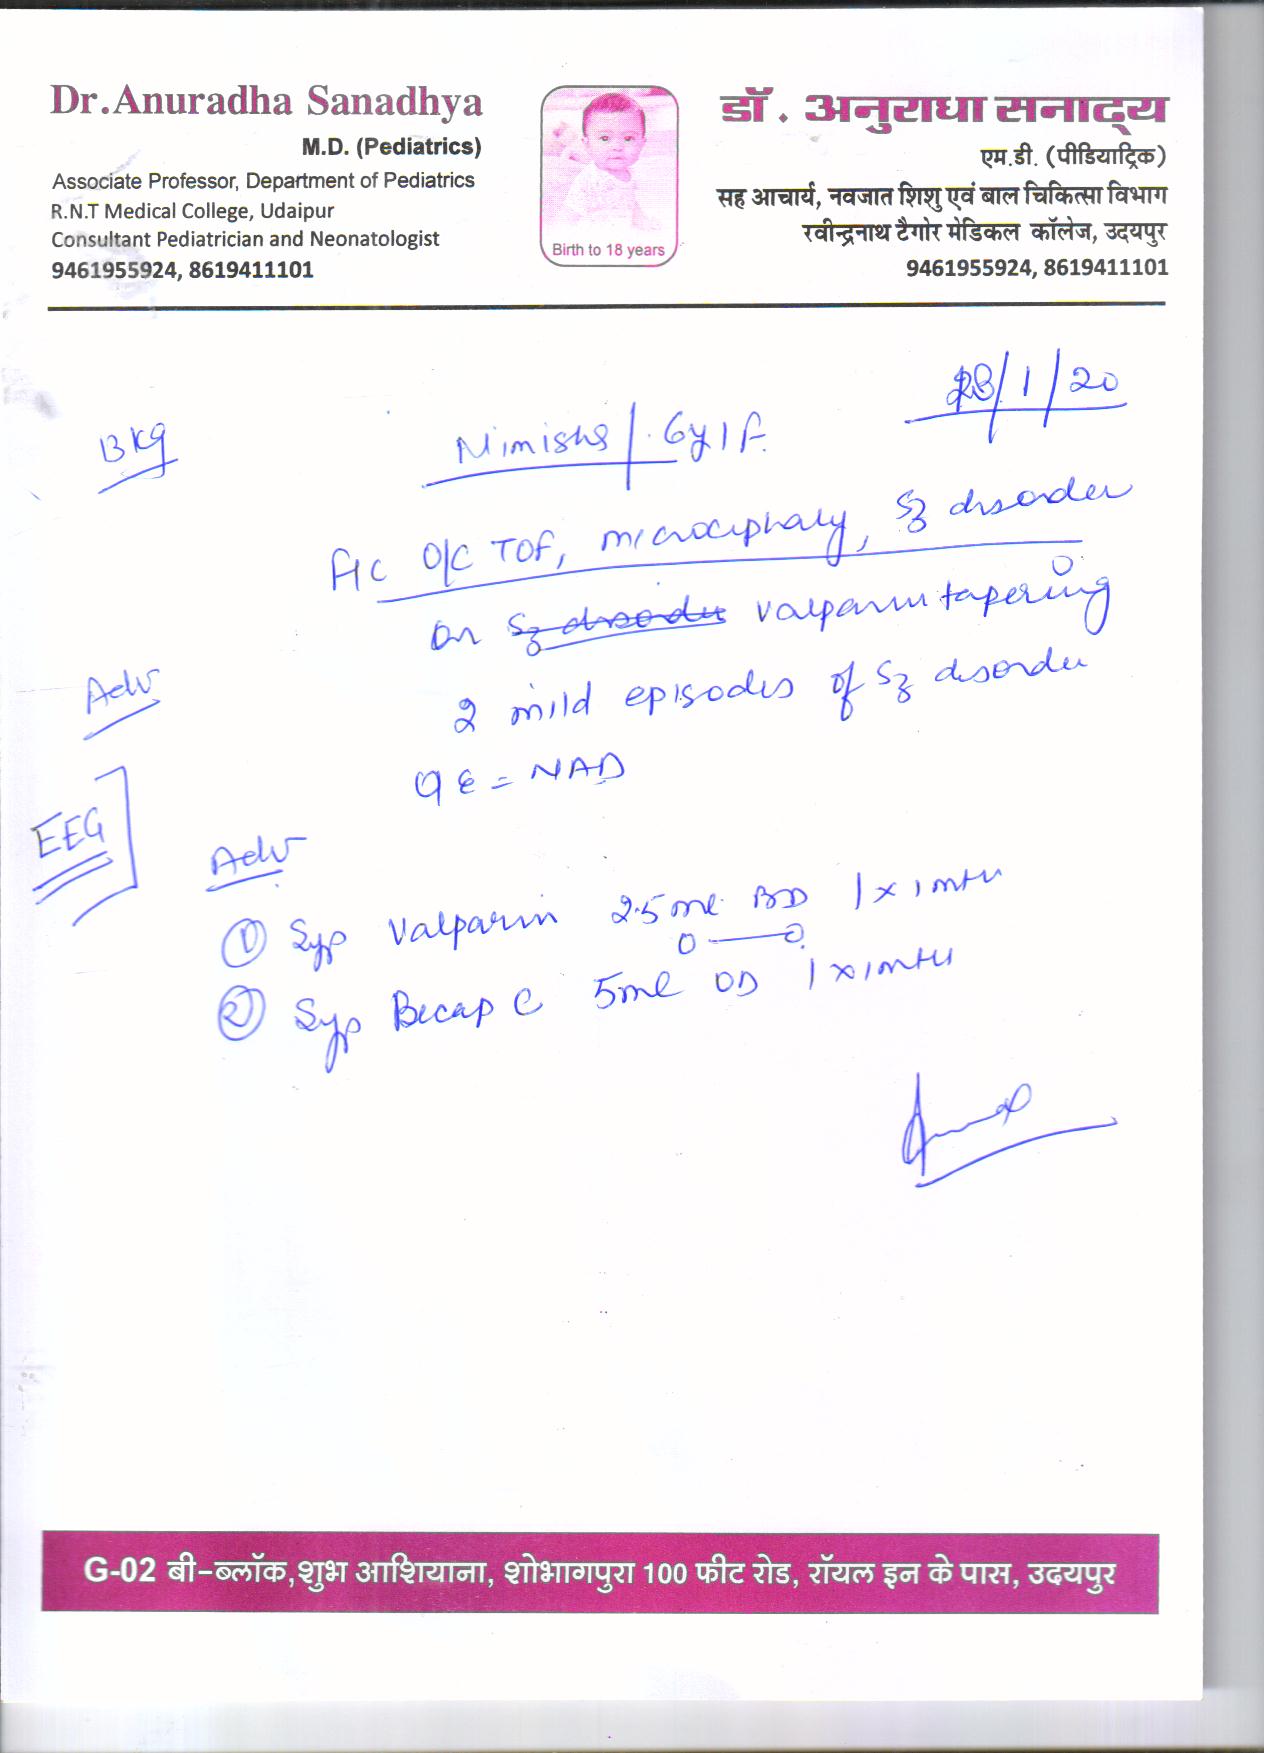 Dr.Anuradha Sanadhya
M.D. (Pediatrics)
Associate Professor, Department of Pediatrics
R.N.T Medical College, Udaipur
Consultant Pediatrician and Neonatologist
9461955924, 8619411101
Birth to 18 years
डॉ. अनुराधा सनाढ्य
एम.डी. (पीडियाट्रिक)
सह आचार्य, नवजात शिशु एवं बाल चिकित्सा विभाग
रवीन्द्रनाथ टैगोर मेडिकल कॉलेज, उदयपुर
9461955924, 8619411101
/1/20
kg
/ 6y/F
O/C TOF, microcephaly, Sz disorder
on Sz disorder valparin tapering
2 mild episodes of Sz disorder
O/E = NAD
Adv
EEG
Adv
① Syp Valparin 2.5ml BD 1 x 1 mth
0 — 0
② Syp Becap C 5ml OD 1 x 1 mth
G-02 बी-ब्लॉक, शुभ आशियाना, शोभागपुरा 100 फीट रोड, रॉयल इन के पास, उदयपुर